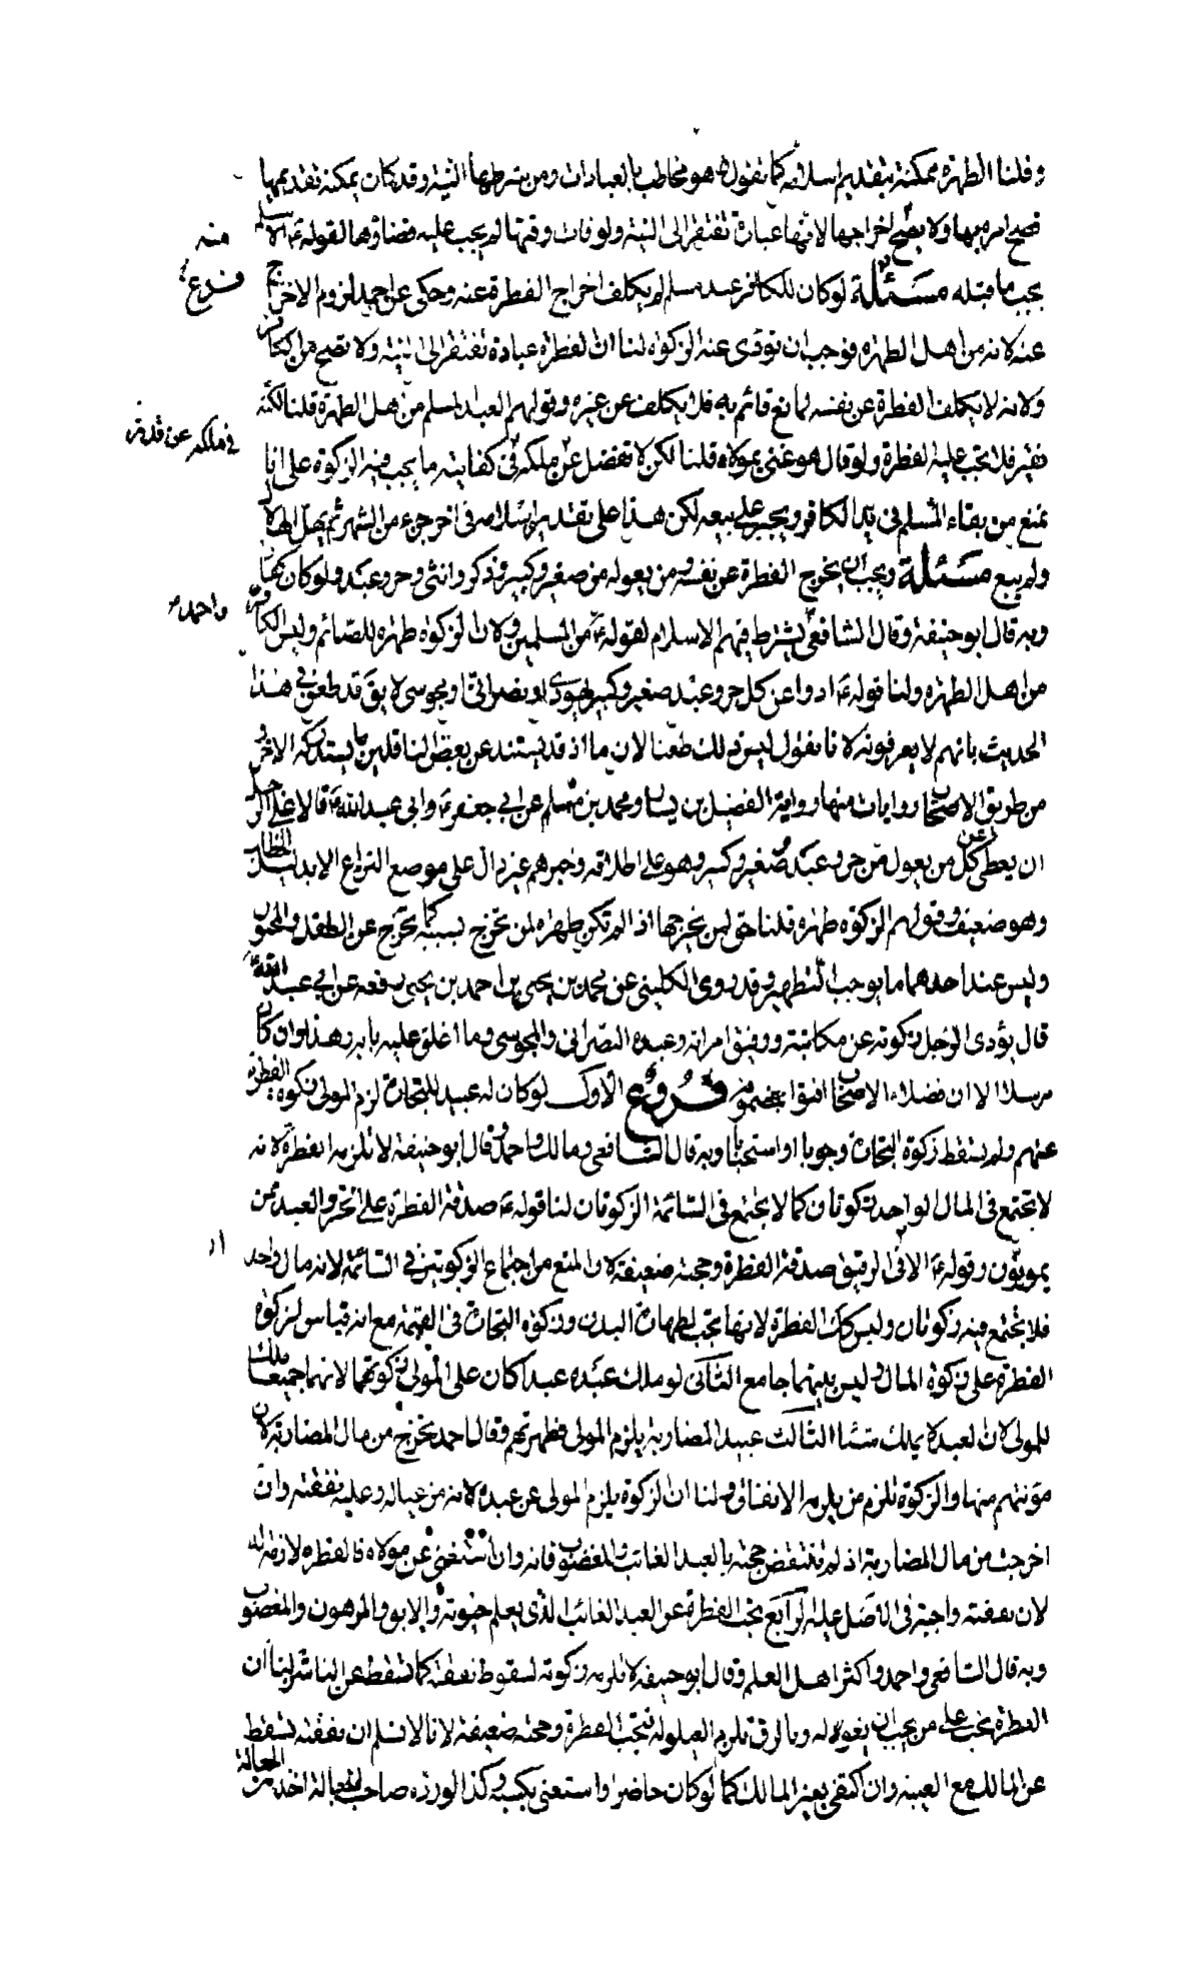 وقلنا الطهرة ممكنة بتقديم اسلامه كما نقول هو مخاطب بالعبادات ومن شرطها النية وقد كان يمكنه تقديمها
فصح امره بها ولا يصح اخراجها لانها عبادة تفتقر الى النية ولو فات وقتها لم يجب عليه قضاؤها لقوله ع الاسلام
يجب ما قبله مسئلة لو كان للكافر عبد مسلم لم يكلف اخراج الفطرة عنه وحكى عن احمد لزوم الاخراج
منه
فرع
عنه لانه من اهل الطهرة فوجب ان تؤدى عنه الزكوة لنا ان الفطرة عبادة تفتقر الى النية ولا تصح من الكافر
ولانه لا يكلف الفطرة عن نفسه لمانع قائم به فلا يكلف عن غيره وقولهم العبد المسلم من اهل الطهرة قلنا لكنه
فقير فلا تجب عليه الفطرة ولو قال هو غني بمولاه قلنا لكن لا تفضل عن ملكه في كفايته ما يجب فيه الزكوة على انا
في ملكه عن قدر
نمنع من بقاء المسلم في يد الكافر ويجبر على بيعه لكن هذا على تقدير اسلامه في اخر جزء من الشهر ثم يهل الهلال
ولم يبع مسئلة ويجب ان يخرج الفطرة عن نفسه ومن يعوله من صغير وكبير وذكر وانثى وحر وعبد ولو كان كافرا
وبه قال ابو حنيفة وقال الشافعي يشترط فيهم الاسلام لقوله ع من المسلمين ولان الزكوة طهرة للصائم وليس الكافر
واحمد
من اهل الطهرة ولنا قوله ع ادوا عن كل حر وعبد صغير وكبير يهودي او نصراني او مجوسي لا يق قد طعن في هذا
الحديث بانهم لا يعرفونه لانا نقول ليس ذلك طعنا لان ما اذ قد يستند عن بعض الناقلين ما يستدركه الاخر و
من طريق الاصحاب روايات منها رواية الفضيل بن يسار ومحمد بن مسلم عن ابي جعفر ع وابي عبد الله ع قالا على الرجل
ان يعطي عن كل من يعول من حر وعبد وصغير وكبير وهو على اطلاقه وخبرهم غير دال على موضع النزاع الا بدليل الخطاب
وهو ضعيف وقولهم الزكوة طهرة قلنا حق لمن يخرجها اذ لم تكن طهرة لمن تخرج بسببه كما تخرج عن الطفل والمجنون
وليس عند احدهما ما يوجب التطهير وقد روى الكليني عن محمد بن يحيى عن احمد بن يحيى رفعه عن ابي عبد الله ع
قال يؤدي الرجل زكوته عن مكاتبه ورقيق امراته وعبده النصراني والمجوسي وما اغلق عليه بابه وهذا وان كان
مرسلا الا ان فضلاء الاصحاب افتوا بمضمونه فروع الاول لو كان له عبيد للتجارة لزم المولى زكوة الفطرة
عنهم ولم يسقط زكوة التجارة وجوبا او استحبابا وبه قال الشافعي ومالك واحمد وقال ابو حنيفة لا تلزمه الفطرة لانه
لا تجتمع في المال الواحد زكوتان كما لا يجتمع في السائمة الزكوتان لنا قوله ع صدقة الفطرة على الحر والعبد ممن
يمونون وقوله ع الا في الرقيق صدقة الفطرة وحجته ضعيفة لان المنع من اجتماع الزكوتين في السائمة لانه مال واحد
فلا تجتمع فيه زكوتان وليس كك الفطرة لانها تجب لطهارة البدن وزكوة التجارة في القيمة مع انه قياس لزكوة
الفطرة على زكوة المال وليس بينهما جامع الثاني لو ملك عبده عبدا كان على المولى زكوتهما لانهما جميعا ملك
للمولى لان العبد لا يملك شيئا الثالث عبيد المضاربة يلزم المولى فطرتهم وقال احمد تخرج من مال المضاربة لان
مؤنتهم منها والزكوة تلزم من يلزمه الانفاق ولنا ان الزكوة يلزم المولى عن عبده لانه من عياله وعليه نفقته وان
اخرجت من مال المضاربة اذ لم تنتقض حجته بالعبد الغائب والمغصوب فانه وان استغنى عن مولاه فالفطرة لازمة له
لان نفقته واجبة في الاصل عليه الرابع تجب الفطرة عن العبد الغائب الذي يعلم حيوته والابق والمرهون والمغصوب
وبه قال الشافعي واحمد واكثر اهل العلم وقال ابو حنيفة لا تلزمه زكوته لسقوط نفقته كما تسقط عن الناشز لنا ان
الفطرة تجب على من يجب ان يعوله وبالرق تلزم العيلولة فتجب الفطرة وحجته ضعيفة لانا لا نسلم ان نفقته تسقط
عن المالك مع الغيبة وان اكتفى بغير المالك كما لو كان حاضرا واستغنى بكسبه وكذا لو رده صاحب الجعالة اخذ من الجعالة